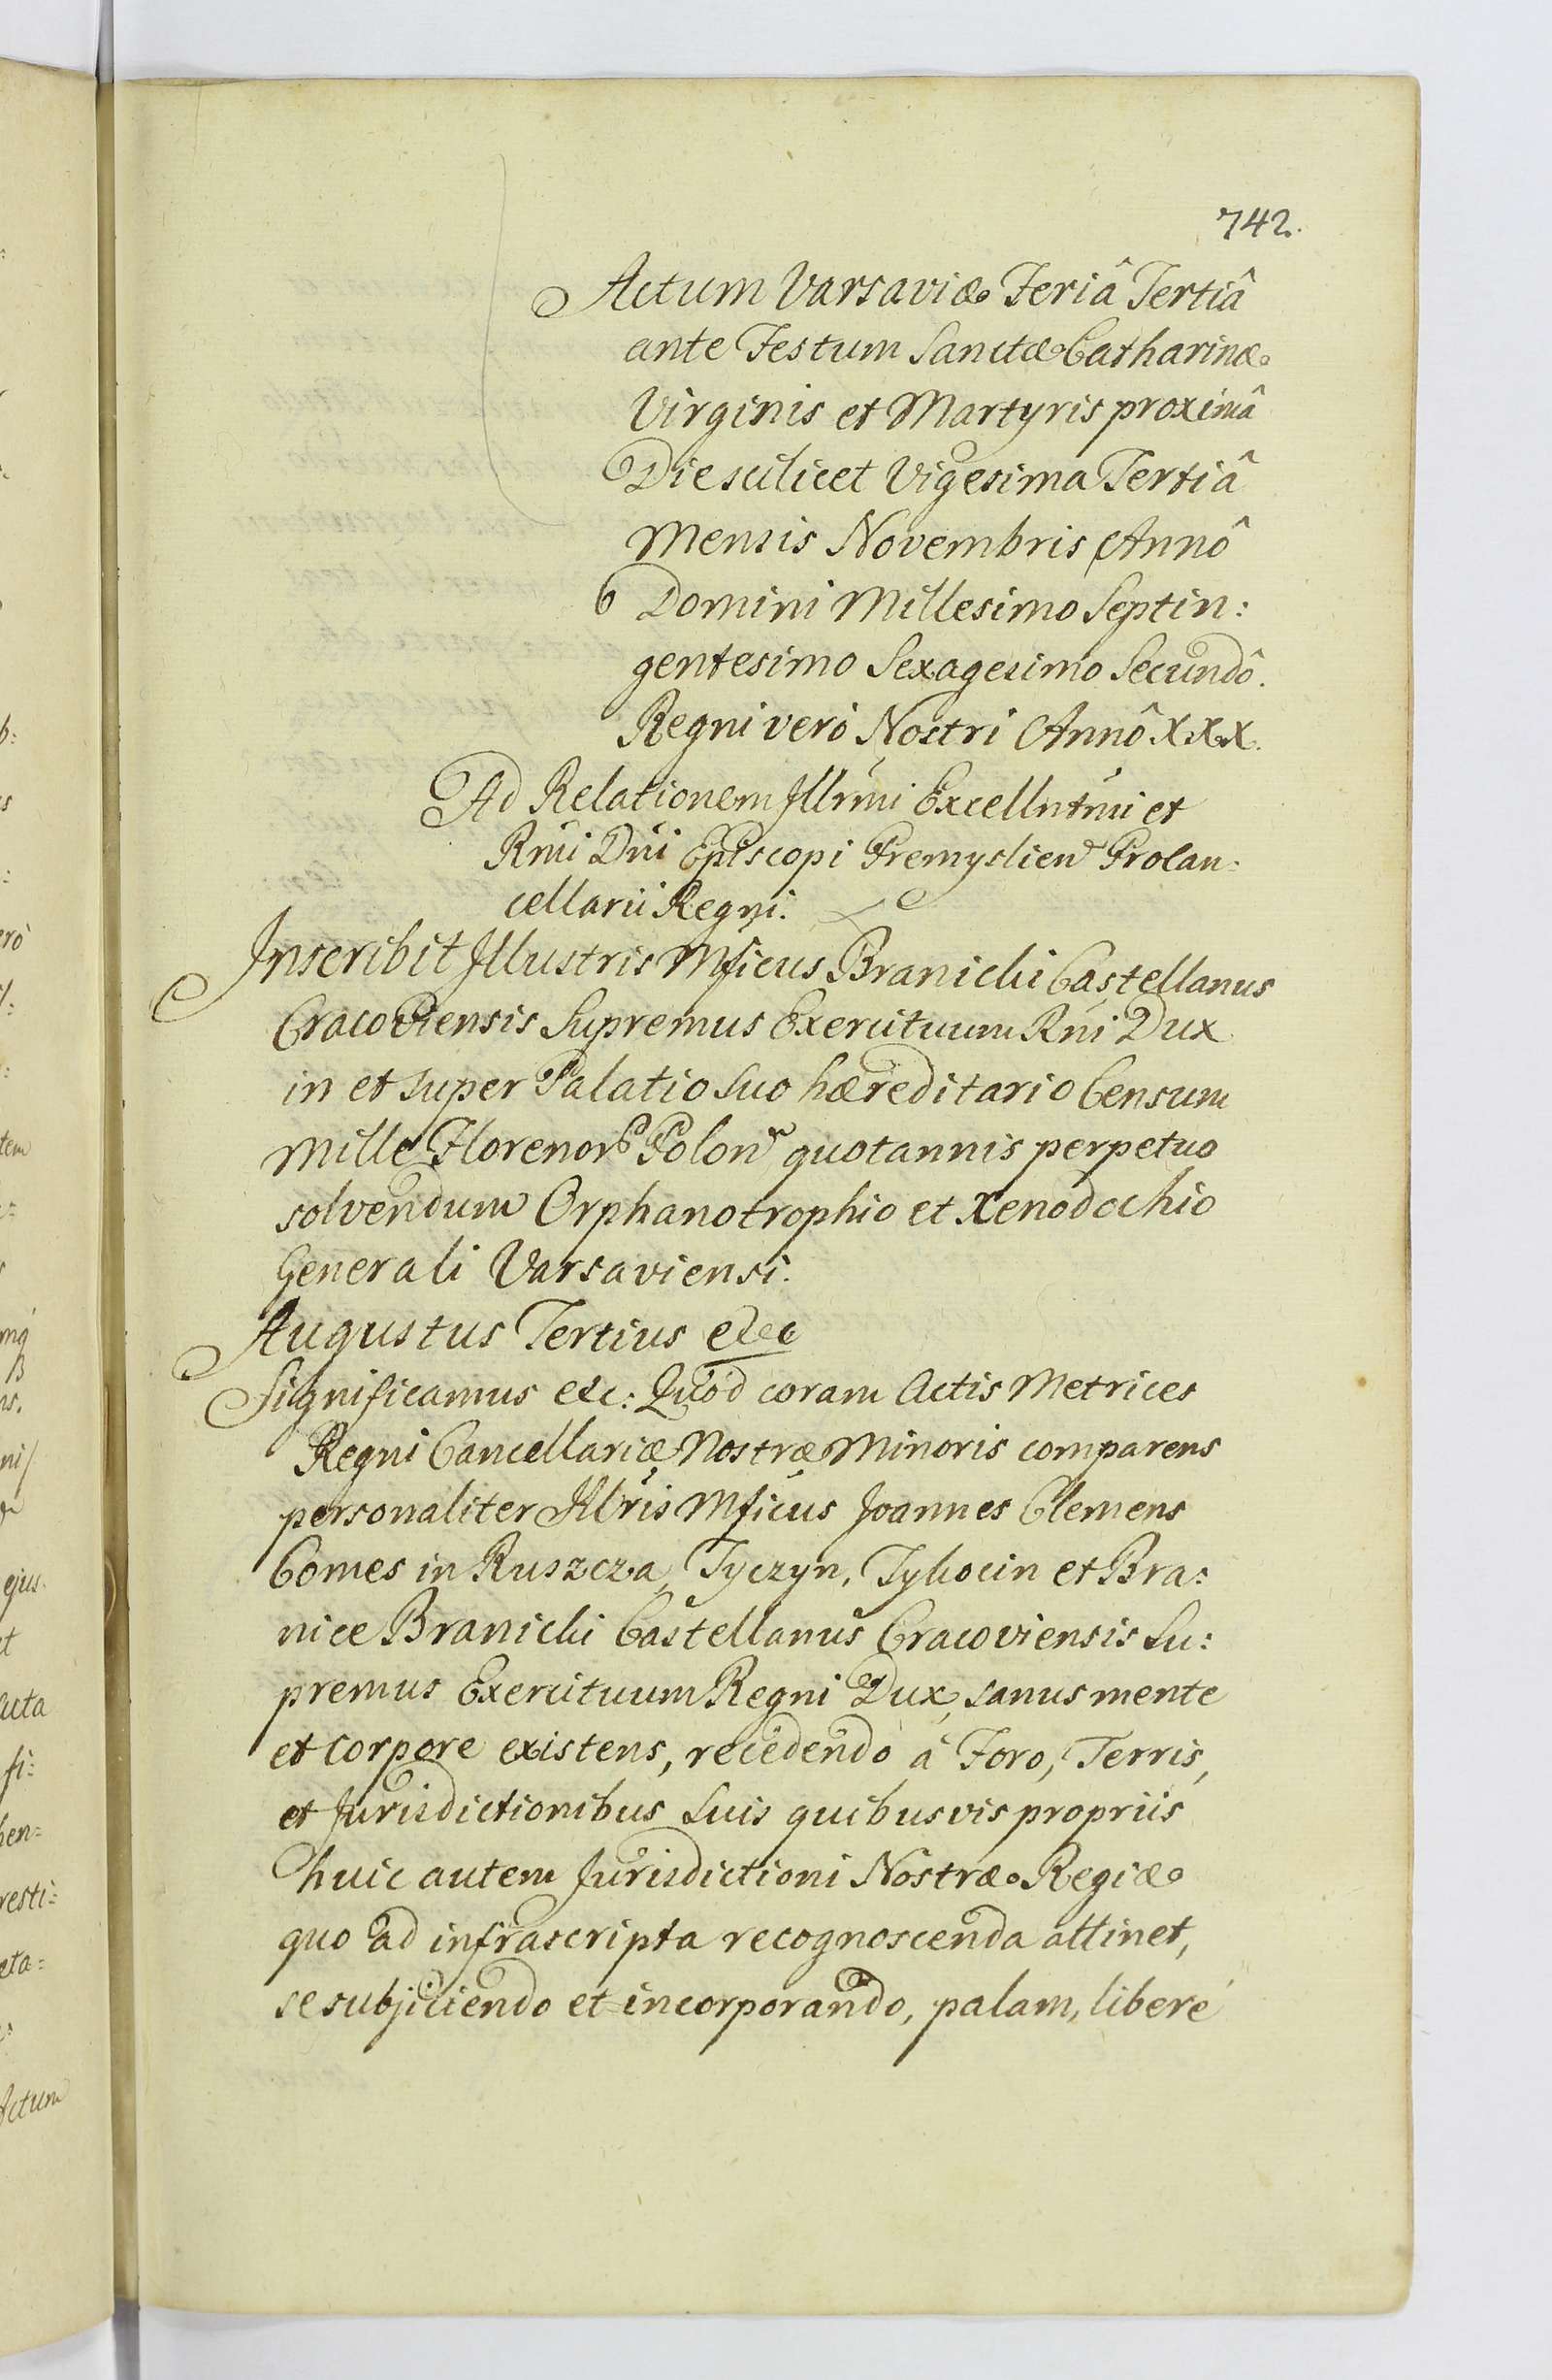 742.
Actum Varsaviæ Feriâ Tertiâ
ante Festum Sanctæ Catharinæ
Virginis et Martyris proximâ
Die scilicet Vigesima Tertiâ
Mensis Novembris Annô
Domini Millesimo Septin:
gentesimo Sexagesimo Secundô.
Regni verò Nostri Annô XXX.
Ad Relationem Illrmi Excellntmi et
Rmi Dni Episcopi Premyslien Procan:
cellarii Regni.
Inscribit Illustris Mficus Branicki Castellanus
Cracoviensis Supremus Exercituum Rni Dux
in et super Palatio suo hæreditario Censum
Mille Florenor Polon quotannis perpetuo
solvendum Orphanotrophio et Xenodochio
Generali Varsaviensi.
Augustus Tertius etc
Significamus etc: Quod coram Actis Metrices
Regni Cancellariæ Nostræ Minoris comparens
personaliter Illris Mficus Joannes Clemens
Comes in Ruszcza, Tyczyn, Tykocin et Bra:
nice Branicki Castellanus Cracoviensis Su:
premus Exercituum Regni Dux, sanus mente
et corpore existens, recedendo á Foro, Terris,
et Jurisdictionibus Suis quibusvis propriis
huic autem Jurisdictioni Nostræ Regiæ
quo ad infrascripta recognoscenda attinet,
se subjiciendo et incorporando, palam, liberé